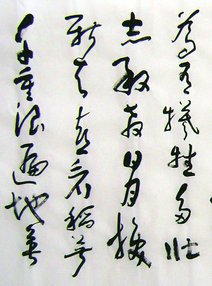 為有犧牲多壯
志敢教日月換
新天喜看稻菽
千重浪遍地英